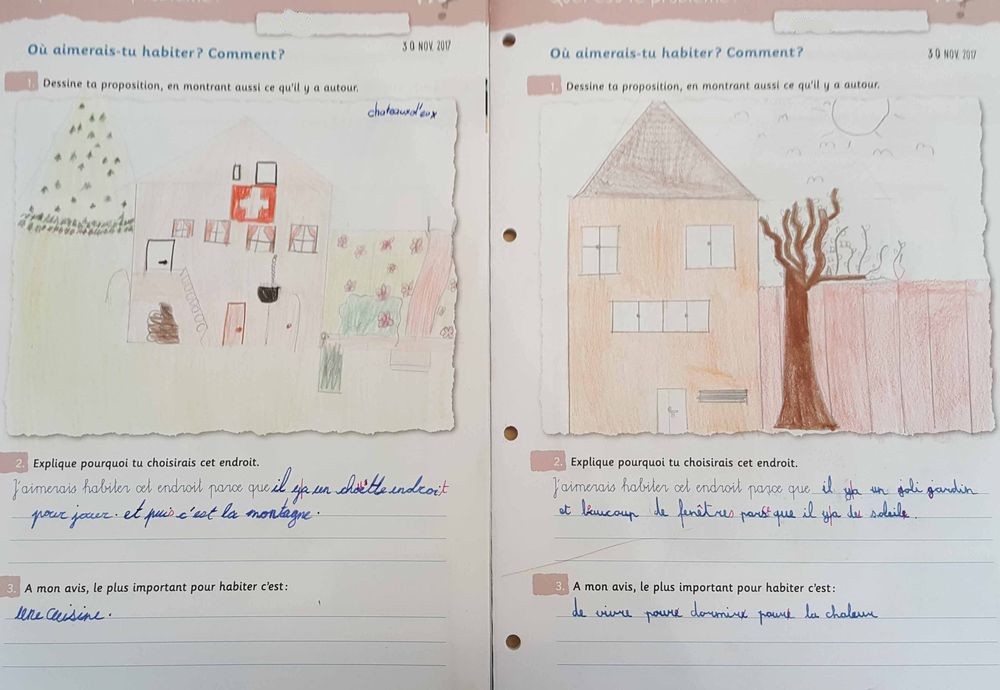 Où aimerais-tu habiter ? Comment ?
30 NOV. 2017
1. Dessine ta proposition, en montrant aussi ce qu'il y a autour.
chateauxd'eux
2. Explique pourquoi tu choisirais cet endroit.
J'aimerais habiter cet endroit parce que il y a un chouette endroit
pour jouer. et puis c'est la montagne.
3. A mon avis, le plus important pour habiter c'est :
une cuisine.
Où aimerais-tu habiter ? Comment ?
30 NOV. 2017
1. Dessine ta proposition, en montrant aussi ce qu'il y a autour.
2. Explique pourquoi tu choisirais cet endroit.
J'aimerais habiter cet endroit parce que il y a un joli gardin
et beaucoup de fenêtres parce que il y a du soleil.
3. A mon avis, le plus important pour habiter c'est :
de vivre pour dormir pour la chaleur